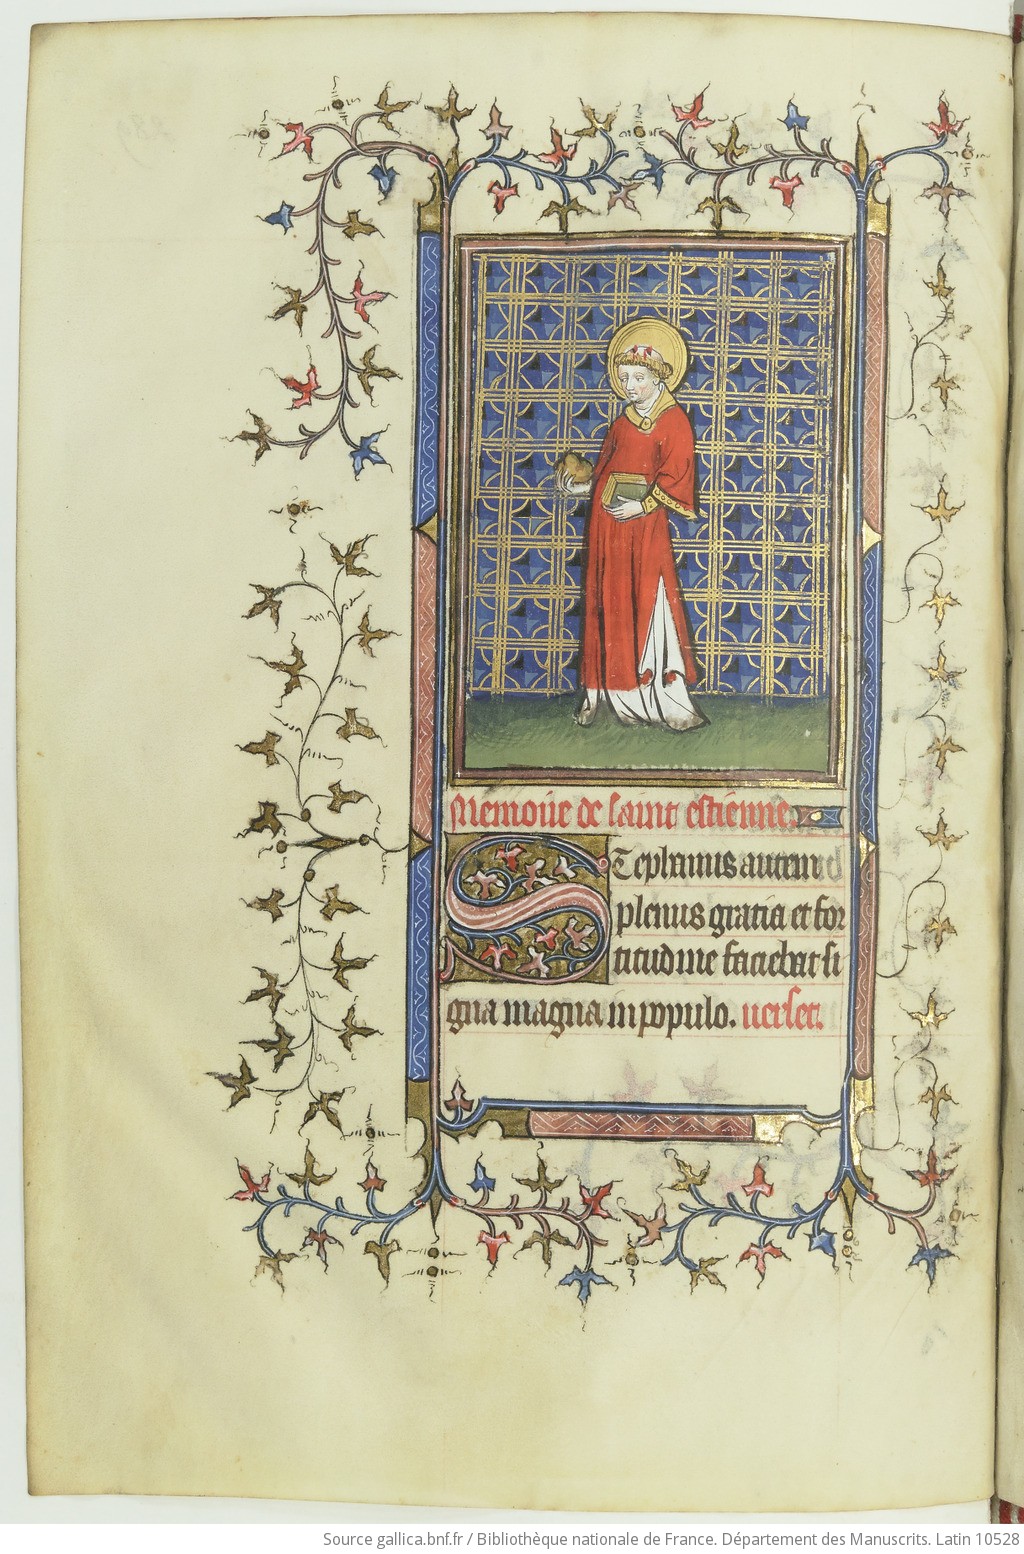 Memoire de saint estienne.
STephanus autem
plenus gratia et for
titudine faciebat si
gna magna in populo. verset.
Source gallica.bnf.fr / Bibliothèque nationale de France. Département des Manuscrits. Latin 10528